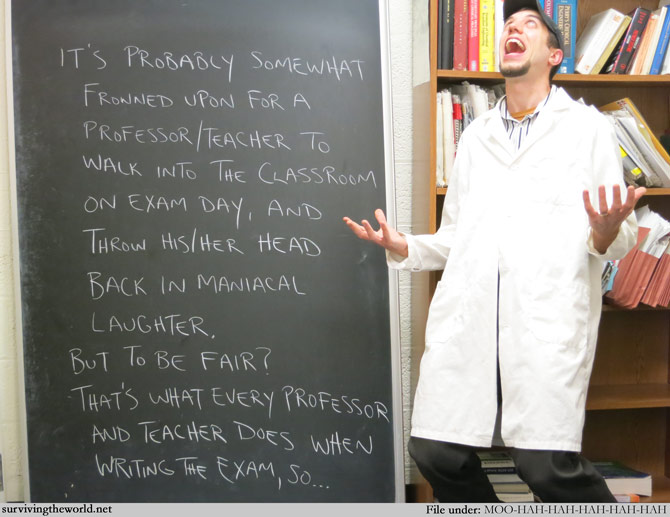 IT'S PROBABLY SOMEWHAT
FROWNED UPON FOR A
PROFESSOR/TEACHER TO
WALK INTO THE CLASSROOM
ON EXAM DAY, AND
THROW HIS/HER HEAD
BACK IN MANIACAL
LAUGHTER.
BUT TO BE FAIR?
THAT'S WHAT EVERY PROFESSOR
AND TEACHER DOES WHEN
WRITING THE EXAM, SO...
survivingtheworld.net
File under: MOO-HAH-HAH-HAH-HAH-HAH